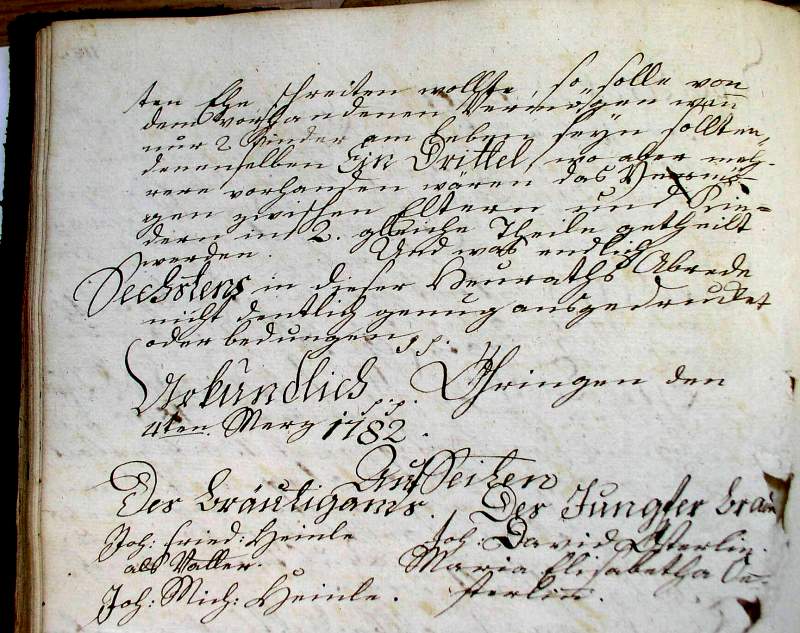 ten Ehe schreiten wollte, so solle von
dem vorhandenen Vermögen wan̄
nur 2 Kinder am Leben seyn sollten,
denenselben Ein Drittel, wo aber meh-
rere vorhanden wären das Vermö-
gen zwischen Eltern und Kin=
dern in 2. gleiche Theile getheilt
werden. Und was endlich
Sechstens in dieser Heuraths Abrede
nicht deutlich genug ausgedrucket
oder bedungen pp.
Urkundlich pp. Öhringen den
4ten Merz 1782.
Auf Seiten
Des Bräutigams. Der Jungfer Braut
Joh: Fried: Heinle Joh: David Österlin.
als Vatter. Maria Elisabetha Oe-
Joh: Mich: Heinle. sterlin.